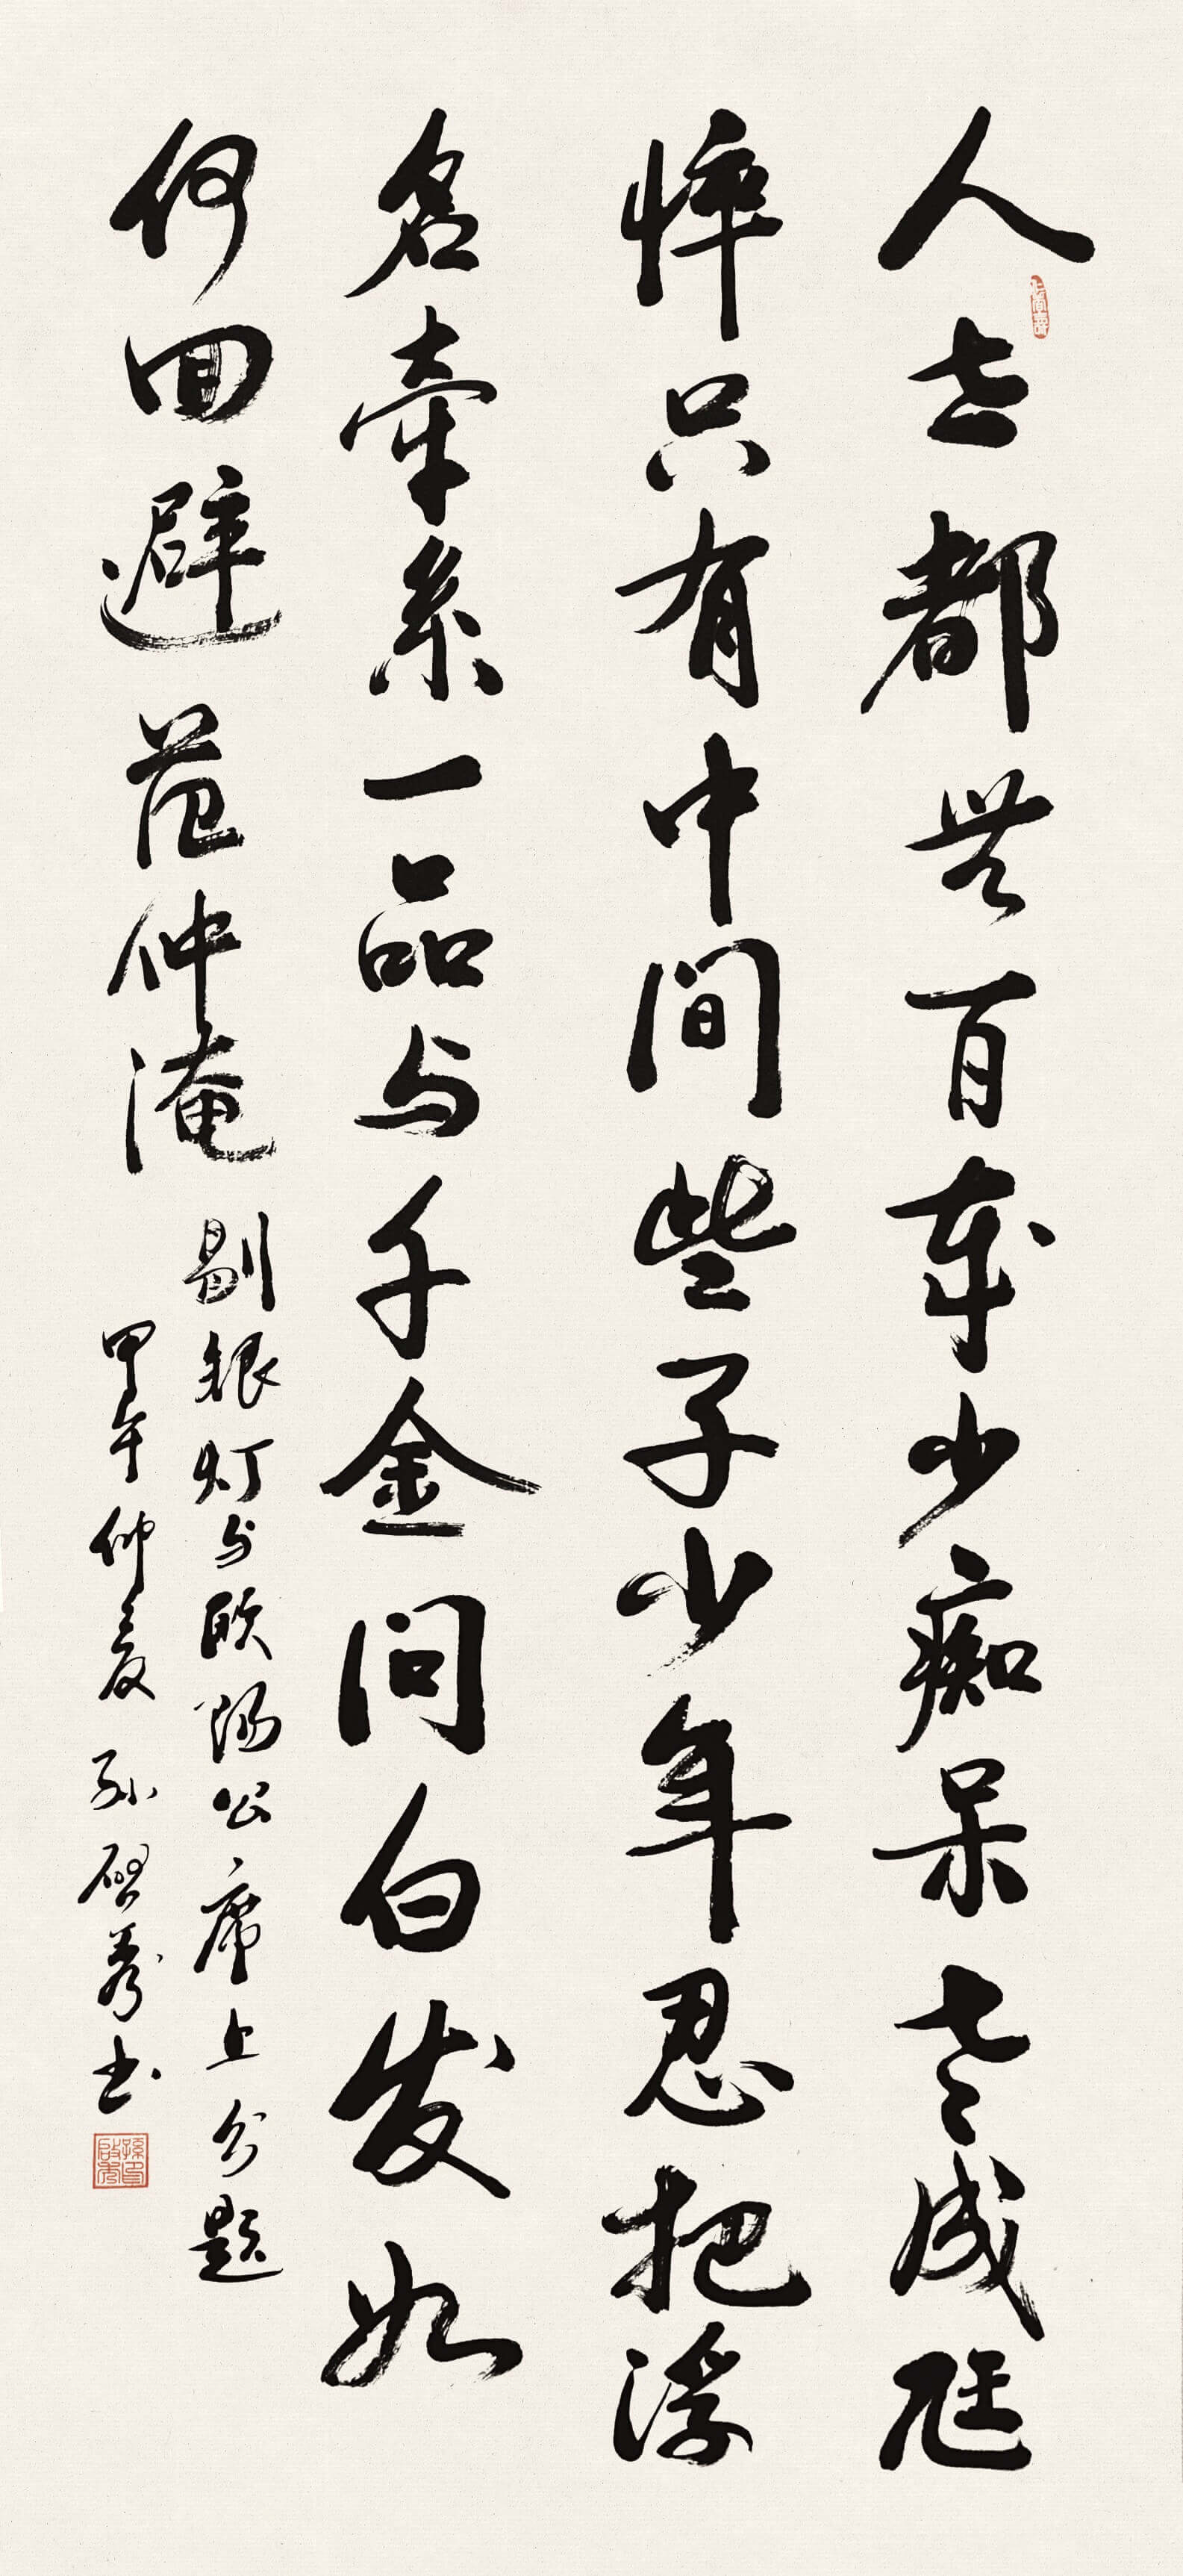 人世都无百岁少痴呆老成尪
悴只有中间些子少年忍把浮
名牵系一品与千金问白发如
何回避 范仲淹 剔银灯与欧阳公席上分题
甲午仲夏 孙启秀书